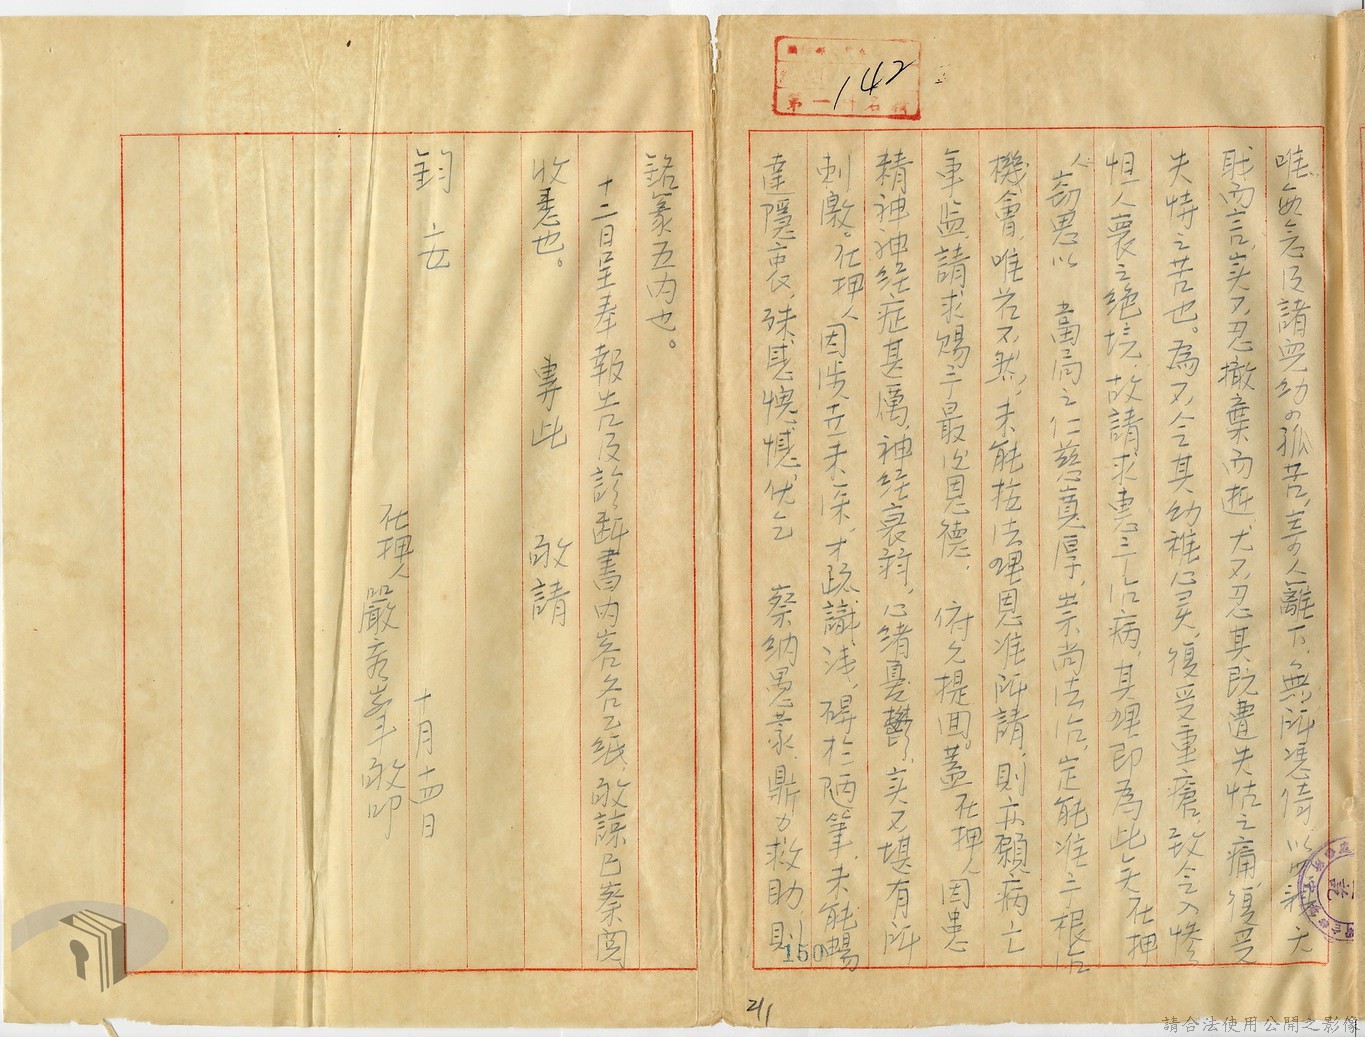 142
唯每念及諸兒幼の孤苦,寄人籬下,無所憑倚,以無
耽而言,实不忍撤棄而逝,尤不忍其既遭失怙之痛,復受
失恃之苦也。為不令其幼稚心灵,復受重瘡,致令入慘
怛人寰之絕境,故請求惠予治病,其理即為此矣,在押
人窃思以 當局之仁慈寬厚,崇尚法治,定能准予根治
機會,唯若不然,未能按法理恩准所請,則亦願病亡
軍监,請求賜予最後恩德, 府允提回。蓋在押人因患
精神神经症甚厲,神经衰弱,心緒憂鬱,实不堪有所
刺激。在押人因涉世未深,才疏識浅,碍於陋筆,未能暢
達隱衷,殊感愧憾,伏乞 察纳愚衷,鼎力救助,則
150
21
銘篆五内也。
十二日呈奉報告及診断書内容各乙紙,敬諒已察閱
收悉也。 專此 敬請
鈞 安
十月十四日
在押人 嚴 敬叩
請合法使用公開之影像